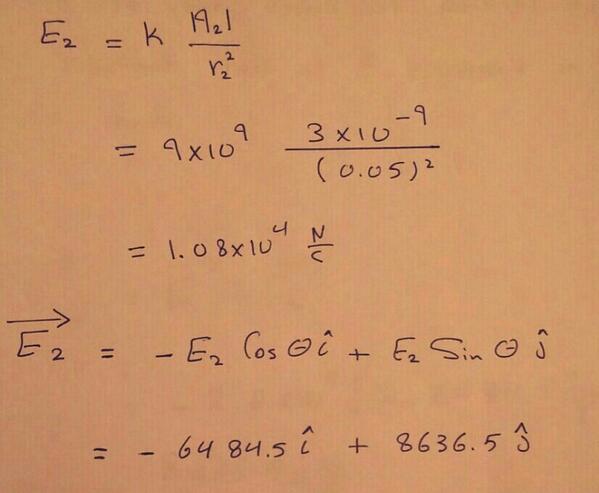 E₂ = k |q₂| / r₂²
= 9×10⁹ 3×10⁻⁹ / (0.05)²
= 1.08×10⁴ N/C
E₂⃗ = - E₂ Cos θ î + E₂ Sin θ ĵ
= - 6484.5 î + 8636.5 ĵ